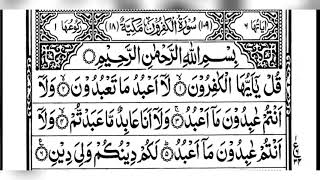 اٰیاتها ٦ (١٠٩) سُوْرَةُ الْكٰفِرُوْنَ مَكِّيَّةٌ (١٨) رکوعها ١
بِسْمِ اللّٰهِ الرَّحْمٰنِ الرَّحِيْمِ
قُلْ يٰۤاَيُّهَا الْكٰفِرُوْنَ ۙ١ لَاۤ اَعْبُدُ مَا تَعْبُدُوْنَ ۙ٢ وَلَاۤ
اَنْتُمْ عٰبِدُوْنَ مَاۤ اَعْبُدُ ۚ٣ وَلَاۤ اَنَا عَابِدٌ مَّا عَبَدْتُّمْ ۙ٤ وَلَاۤ
اَنْتُمْ عٰبِدُوْنَ مَاۤ اَعْبُدُ ؕ٥ لَكُمْ دِيْنُكُمْ وَلِيَ دِيْنِ ۠٦